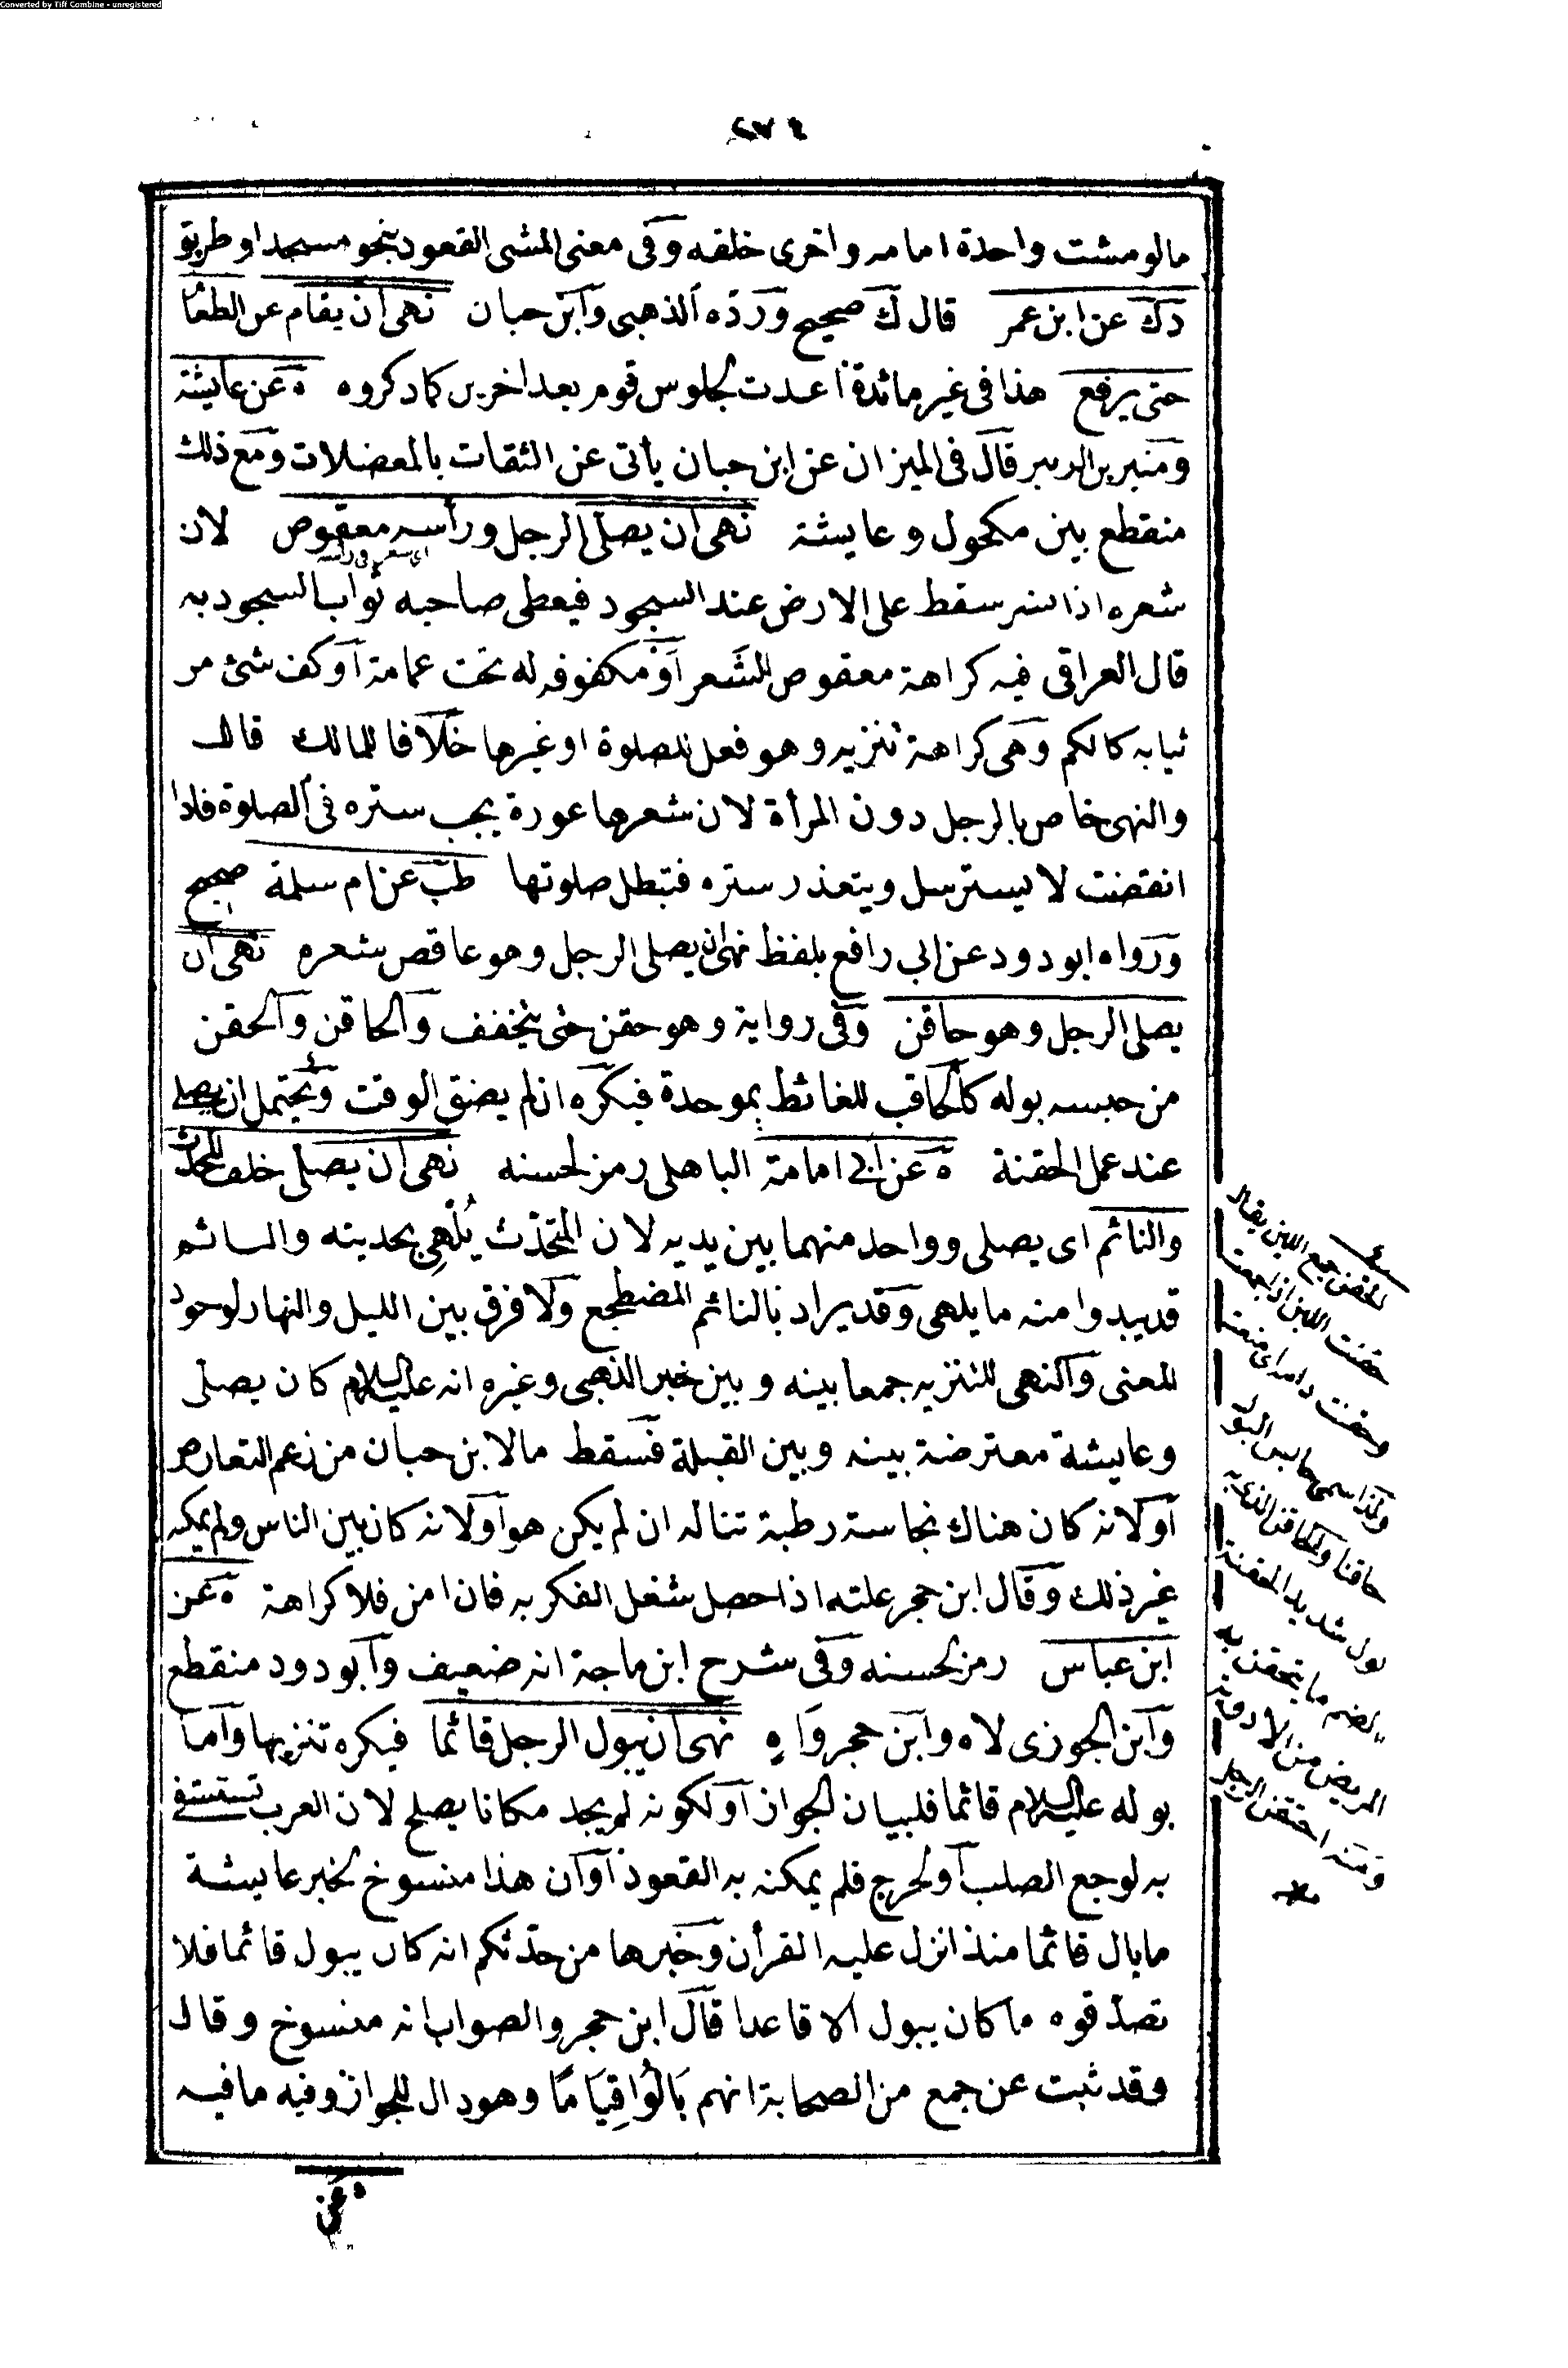 Converted by Tiff Combine - unregistered
مالو مشت واحدة امامه واخرى خلفه وفى معنى المشى القعود بنحو مسجد او طريق
دك عن ابن عمر قال ك صحيح ورده الذهبى وابن حبان نهى ان يقام عن الطعام
حتى يرفع هذا فى غير مائدة اعدت لجلوس قوم بعد اخرين كما ذكروه ه عن عايشة
ومنير بن الزبير قال فى الميزان عن ابن حبان يأتى عن الثقات بالمعضلات ومع ذلك
منقطع بين مكحول وعايشة نهى ان يصلى الرجل ورأسه معقوص لان
شعره اذا نشر سقط على الارض عند السجود فيعطى صاحبه ثواب السجود به
قال العراقى فيه كراهة معقوص الشعر او مكفوفه له تحت عمامة او كف شئ من
ثيابه كالكم وهى كراهة تنزيه وهو فعل للصلوة او غيرها خلافا لمالك قال
والنهى خاص بالرجل دون المرأة لان شعرها عورة يجب ستره فى الصلوة فاذا
انقضت لا يسترسل ويتعذر ستره فتبطل صلوتها طب عن ام سلمة صحيح
ورواه ابو دود عن ابى رافع بلفظ نهى ان يصلى الرجل وهو عاقص شعره نهى ان
يصلى الرجل وهو حاقن وفى رواية وهو حقن حتى يتخفف والحاقن والحقن
من حبسه بوله كالحاقب للغائط بموحدة فيكره ان لم يضق الوقت ويحتمل ان يصلى
عند عمل الحقنة ه عن ابى امامة الباهلى رمز لحسنه نهى ان يصلى خلف المتحدث
والنائم اى يصلى وواحد منهما بين يديه لان المتحدث يُلْهِى بحديثه والنائم
قد يبدوا منه ما يلهى وقد يراد بالنائم المضطجع ولا فرق بين الليل والنهار لوجود
المعنى والنهى للتنزيه جمعا بينه وبين خبر الذهبى وغيره انه عليه السلام كان يصلى
وعايشة معترضة بينه وبين القبلة فسقط ما لابن حبان من زعم التعارض
او لانه كان هناك نجاسة رطبة تناله ان لم يكن هو او لانه كان بين الناس ولم يمكنه
غير ذلك وقال ابن حجر علته اذا حصل شغل الفكر به فان امن فلا كراهة ه عن
ابن عباس رمز لحسنه وفى شرح ابن ماجة انه ضعيف وابو دود منقطع
وابن الجوزى لاه وابن حجر وَاهٍ نهى ان يبول الرجل قائما فيكره تنزيها واما
بوله عليه السلام قائما فلبيان الجواز او لكونه لم يجد مكانا يصلح لان العرب تستشفى
به لوجع الصلب او لجرح فلم يمكنه به القعود او ان هذا منسوخ لخبر عايشة
ما بال قائما منذ انزل عليه القرأن وخبرها من حدثكم انه كان يبول قائما فلا
تصدقوه ما كان يبول الا قاعدا قال ابن حجر والصواب انه منسوخ وقال
وقد ثبت عن جمع من الصحابة انهم بَالُوا قِيَامًا وهو دال للجواز وفيه ما فيه
ه عن
الحقن جمع اللبن يقال
حقنت اللبن اذا جمعت
وحقنت دمه اى منعت
ولذا سمى حابس البول
حاقنا والحاقن الذى به
بول شديد الحقنة
بالضم ما يحقن به
المريض من الادوية
ومنه احتقن الرجل